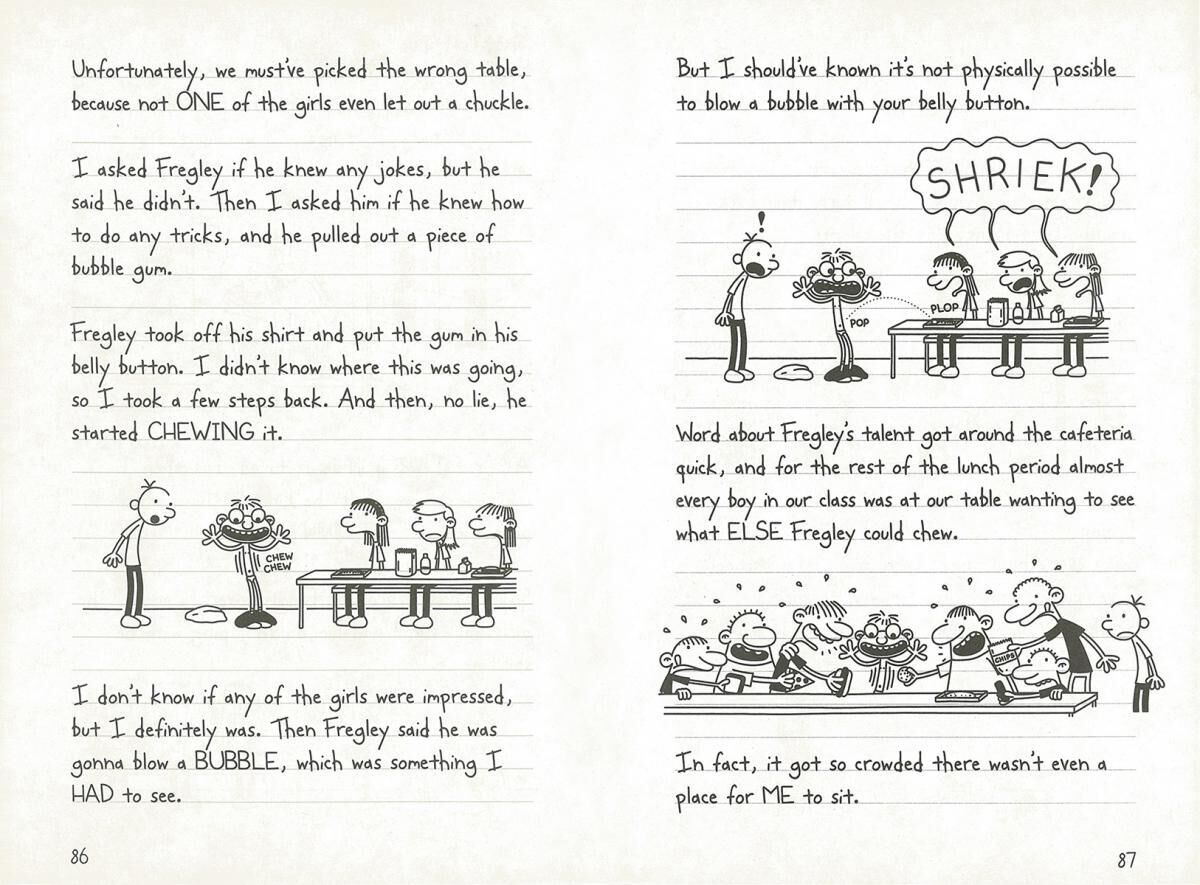 Unfortunately, we must've picked the wrong table,
because not ONE of the girls even let out a chuckle.
I asked Fregley if he knew any jokes, but he
said he didn't. Then I asked him if he knew how
to do any tricks, and he pulled out a piece of
bubble gum.
Fregley took off his shirt and put the gum in his
belly button. I didn't know where this was going,
so I took a few steps back. And then, no lie, he
started CHEWING it.
CHEW
CHEW
I don't know if any of the girls were impressed,
but I definitely was. Then Fregley said he was
gonna blow a BUBBLE, which was something I
HAD to see.
86
But I should've known it's not physically possible
to blow a bubble with your belly button.
SHRIEK!
!
POP
PLOP
Word about Fregley's talent got around the cafeteria
quick, and for the rest of the lunch period almost
every boy in our class was at our table wanting to see
what ELSE Fregley could chew.
CHIPS
In fact, it got so crowded there wasn't even a
place for ME to sit.
87